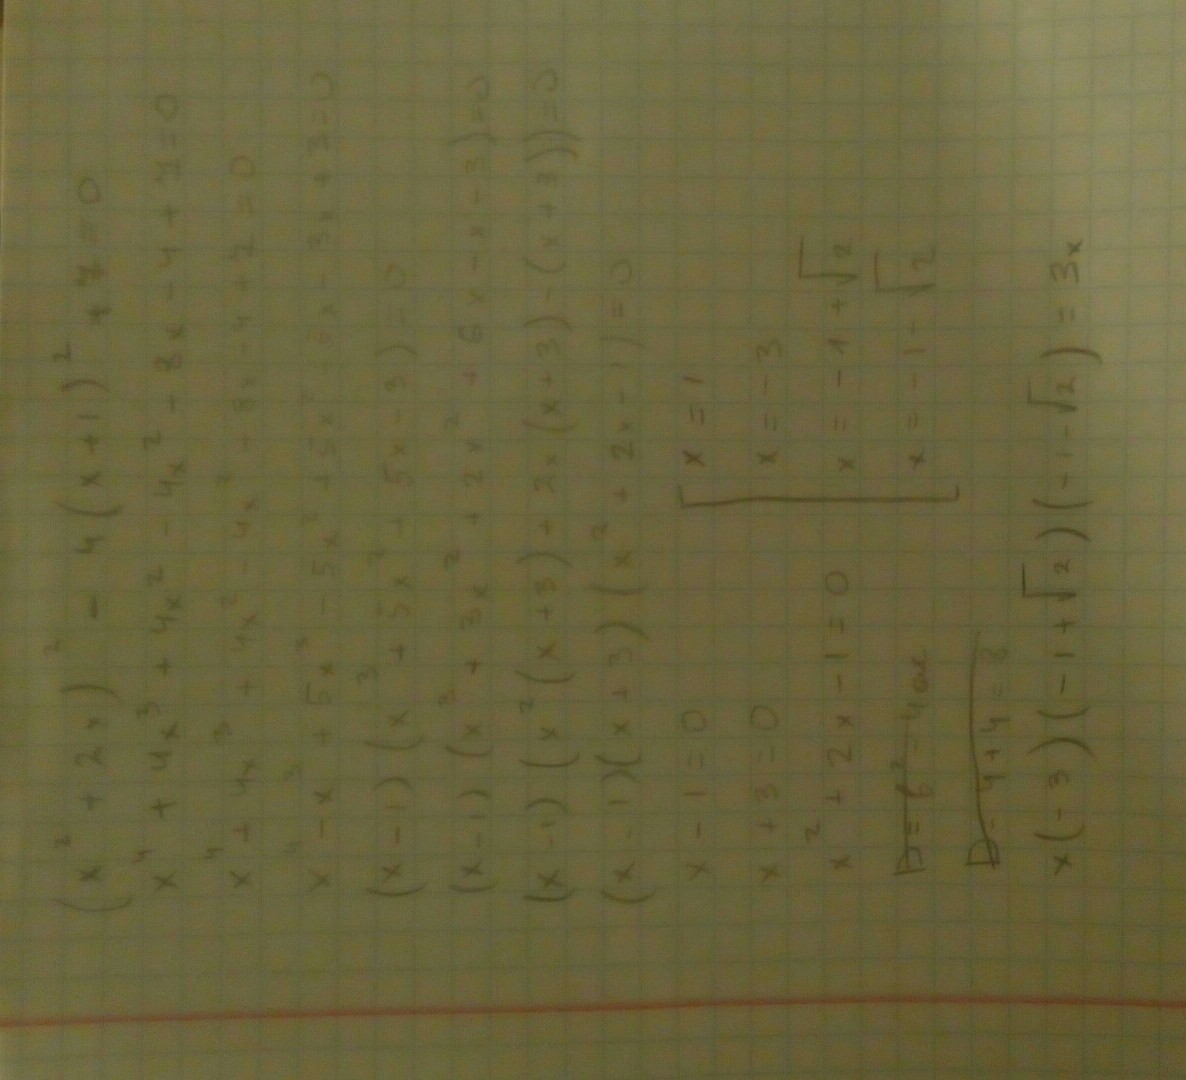 (x² + 2x)² - 4(x+1)² + 7 = 0
x⁴ + 4x³ + 4x² - 4x² + 8x - 4 + 7 = 0
x⁴ + 4x³ + 4x² - 4x² - 8x - 4 + 7 = 0
x⁴ - x³ + 5x³ - 5x² + 5x² - 5x - 3x + 3 = 0
(x-1)(x³ + 5x² + 5x - 3) = 0
(x-1)(x³ + 3x² + 2x² + 6x - x - 3) = 0
(x-1)(x²(x+3) + 2x(x+3) - (x+3)) = 0
(x-1)(x+3)(x² + 2x - 1) = 0
x - 1 = 0 [ x = 1
x + 3 = 0 x = -3
x² + 2x - 1 = 0 x = -1 + √2
D = b² - 4ac x = -1 - √2
D = 4 + 4 = 8
x(-3)(-1+√2)(-1-√2) = 3x